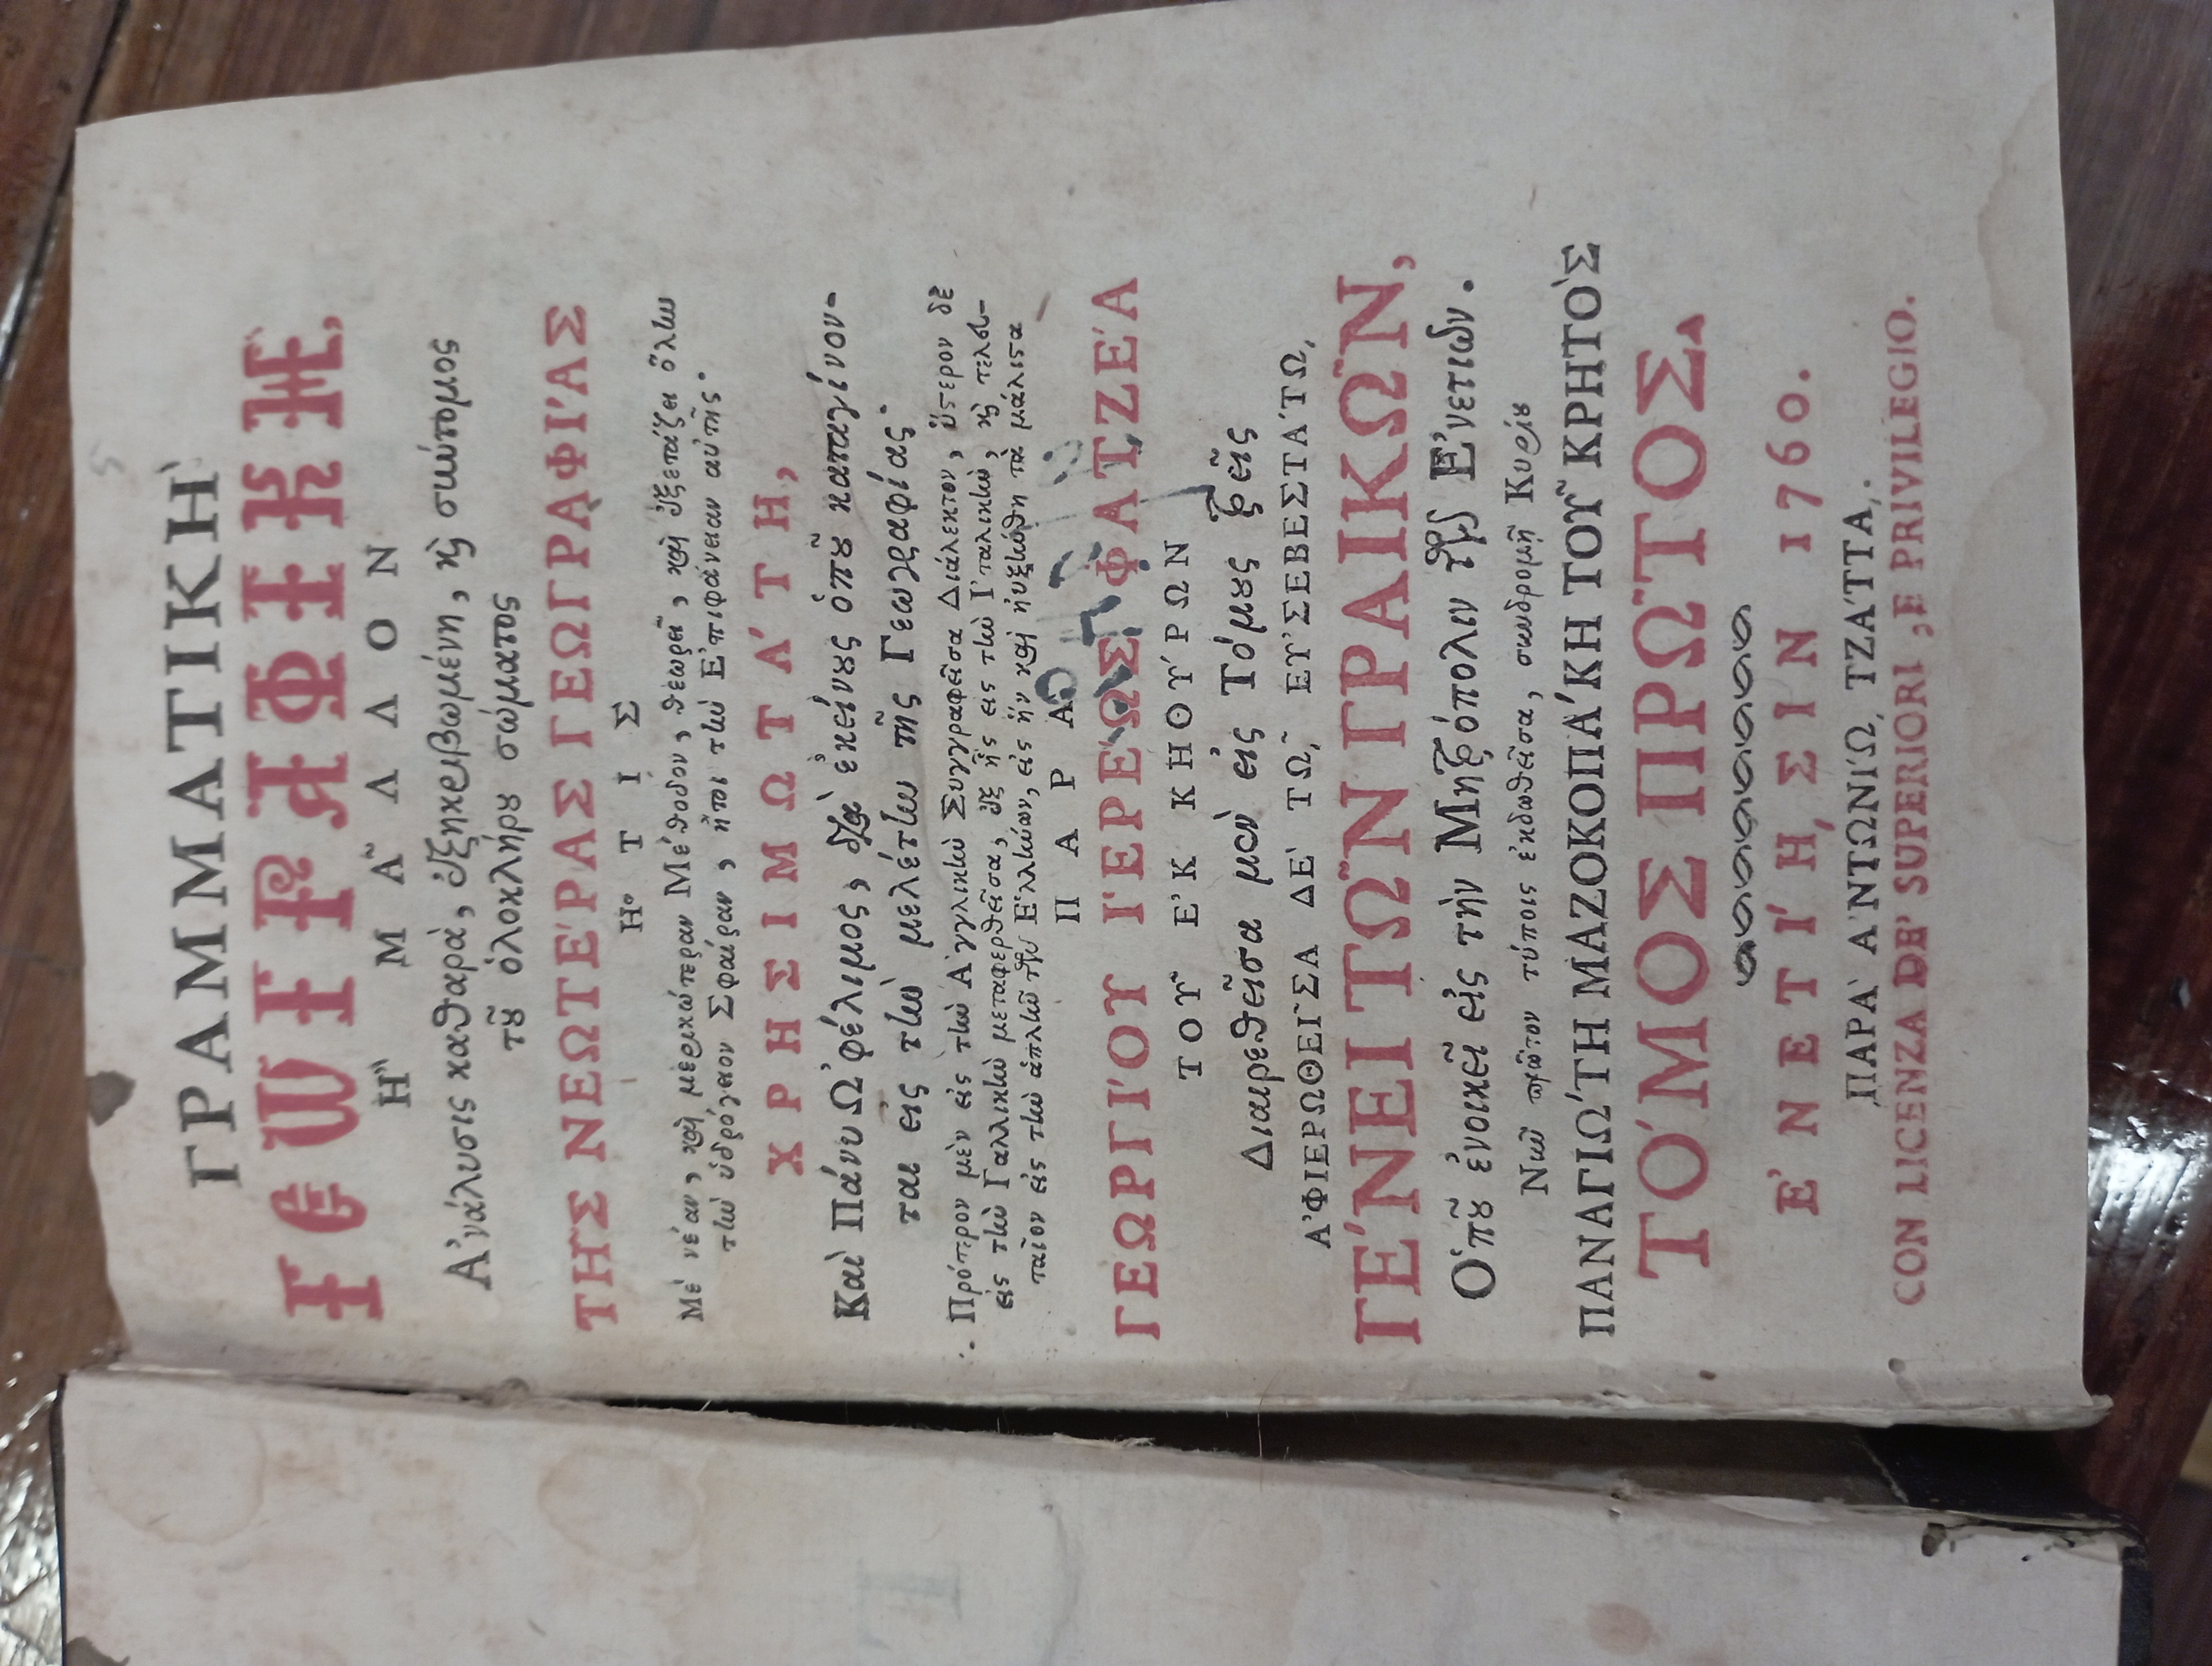 ΓΡΑΜΜΑΤΙΚῊ
ΓΕΩΓΡΑΦΙΚῊ,
Ἢ ΜΑ͂ΛΛΟΝ
Ἀνάλυσις καθαρὰ, ἐξηκριβωμένη, ϗ̀ σύντομος
τοῦ ὁλοκλήρου σώματος
ΤΗ͂Σ ΝΕΩΤΈΡΑΣ ΓΕΩΓΡΑΦΊΑΣ
Ἥ ΤΙΣ
Μὲ νέαν, καὶ μερικώτεραν Μέθοδον, θεωρεῖ, καὶ ἐξετάζει ὅλην
τὴν ὑδρόγειον Σφαίραν, ἤτοι τὴν Ἐπιφάνειαν αὐτῆς.
ΧΡΗΣΙΜΩΤΆΤΗ,
Καὶ Πάνυ Ὠφέλιμος, διὰ ἐκείνους ὁποῦ καταγίνον-
ται εἰς τὴν μελέτην τῆς Γεωγραφίας.
Πρότερον μὲν εἰς τὴν Ἀγγλικὴν Συγγραφεῖσα Διάλεκτον, ὕστερον δὲ
εἰς τὴν Γαλλικὴν μεταφερθεῖσα, ἐξ ἧς εἰς τὴν Ἰταλικὴν, ϗ̀ τελευ-
ταῖον εἰς τὴν ἁπλῆν τῶν Ἑλλήνων, εἰς ἣν καὶ ηὐξήθη τὰ μάλιστα
ΠΑΡᾺ
ΓΕΩΡΓΊΟΥ ἹΕΡΈΩΣ ΦΑΤΖΈΑ
ΤΟΥ͂ ἘΚ ΚΗΘΎΡΩΝ
Διαιρεθεῖσα μὲν εἰς Τόμους τρεῖς
ἈΦΙΕΡΩΘΕΙ͂ΣΑ ΔῈ ΤΩ͂, ΕΥ̓ΣΕΒΕΣΤΆΤΩ,
ΓΈΝΕΙ ΤΩ͂Ν ΓΡΑΙΚΩ͂Ν,
Ὁποῦ ἐνοικεῖ εἰς τὴν Μητρόπολιν τῶν Ἐνετιῶν.
Νῦν πρῶτον τύποις ἐκδωθεῖσα, συνδρομῇ Κυρίου
ΠΑΝΑΓΙΏΤΗ ΜΑΖΟΚΟΠΆΚΗ ΤΟΥ͂ ΚΡΗΤῸΣ
ΤΌΜΟΣ ΠΡΩ͂ΤΟΣ.
ἘΝΕΤΊΗ,ΣΙΝ 1760.
ΠΑΡᾺ ἈΝΤΩΝΊΩ, ΤΖΆΤΤΑ,.
CON LICENZA DE' SUPERIORI, E PRIVILEGIO.